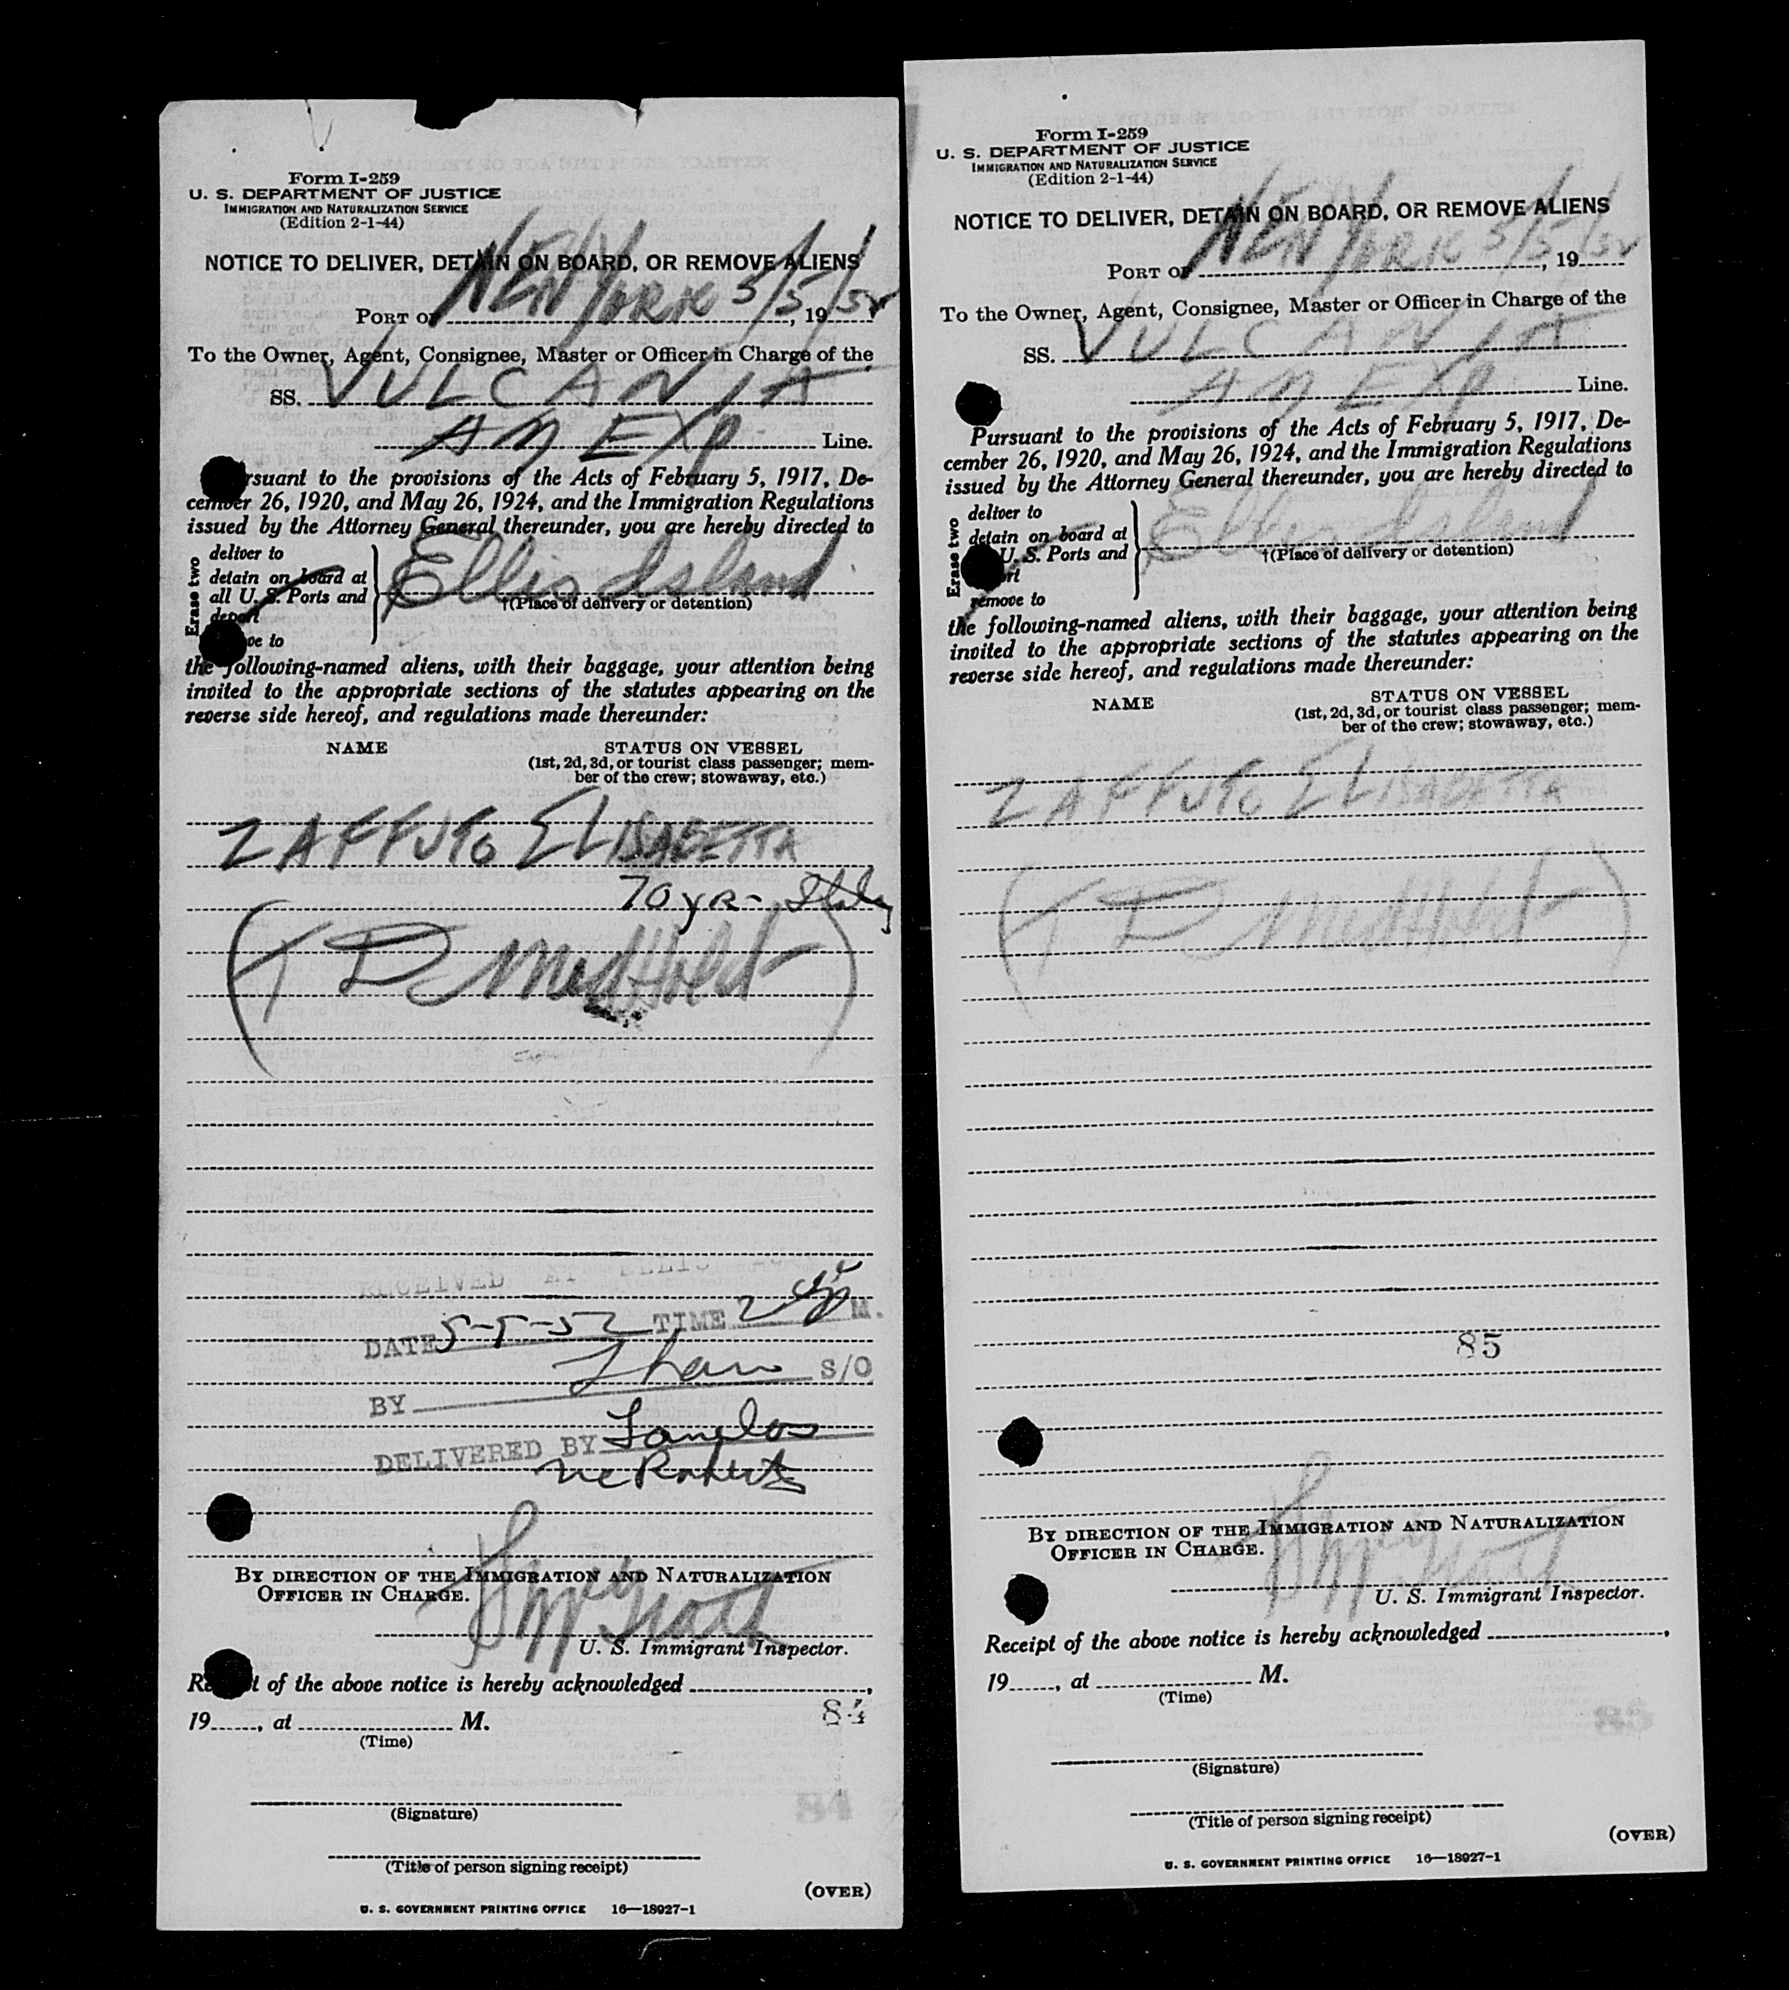 Form I-259
U. S. DEPARTMENT OF JUSTICE
IMMIGRATION AND NATURALIZATION SERVICE
(Edition 2-1-44)
NOTICE TO DELIVER, DETAIN ON BOARD, OR REMOVE ALIENS
PORT OF NEW YORK 5/5/, 1952
To the Owner, Agent, Consignee, Master or Officer in Charge of the
SS. VULCANIA
AM EXP Line.
rsuant to the provisions of the Acts of February 5, 1917, De-
cember 26, 1920, and May 26, 1924, and the Immigration Regulations
issued by the Attorney General thereunder, you are hereby directed to
Erase two
deliver to
detain on board at
all U. S. Ports and
deport
ve to
Ellis Island
†(Place of delivery or detention)
the following-named aliens, with their baggage, your attention being
invited to the appropriate sections of the statutes appearing on the
reverse side hereof, and regulations made thereunder:
NAME STATUS ON VESSEL
(1st, 2d, 3d, or tourist class passenger; mem-
ber of the crew; stowaway, etc.)
ZAFFUTO ELISABETTA
70 yrs- Italy
(T D Med Hold)
RECEIVED AT ELLIS
DATE 5-5-52 TIME 2 M.
BY S/O
DELIVERED BY
McRoberts
BY DIRECTION OF THE IMMIGRATION AND NATURALIZATION
OFFICER IN CHARGE.
U. S. Immigrant Inspector.
Re t of the above notice is hereby acknowledged ,
19 , at M.
(Time)
84
(Signature)
84
(Title of person signing receipt)
(OVER)
U. S. GOVERNMENT PRINTING OFFICE 16—18927-1
Form I-259
U. S. DEPARTMENT OF JUSTICE
IMMIGRATION AND NATURALIZATION SERVICE
(Edition 2-1-44)
NOTICE TO DELIVER, DETAIN ON BOARD, OR REMOVE ALIENS
PORT OF NEW YORK 5/5/52, 19
To the Owner, Agent, Consignee, Master or Officer in Charge of the
SS. VULCANIA
AM EXP Line.
Pursuant to the provisions of the Acts of February 5, 1917, De-
cember 26, 1920, and May 26, 1924, and the Immigration Regulations
issued by the Attorney General thereunder, you are hereby directed to
Erase two
deliver to
detain on board at
U. S. Ports and
rt
remove to
Ellis Island
†(Place of delivery or detention)
the following-named aliens, with their baggage, your attention being
invited to the appropriate sections of the statutes appearing on the
reverse side hereof, and regulations made thereunder:
NAME STATUS ON VESSEL
(1st, 2d, 3d, or tourist class passenger; mem-
ber of the crew; stowaway, etc.)
ZAFFUTO ELISABETTA
(T D Med Hold)
85
BY DIRECTION OF THE IMMIGRATION AND NATURALIZATION
OFFICER IN CHARGE.
U. S. Immigrant Inspector.
Receipt of the above notice is hereby acknowledged ,
19 , at M.
(Time)
85
(Signature)
(Title of person signing receipt)
(OVER)
U. S. GOVERNMENT PRINTING OFFICE 16—18927-1